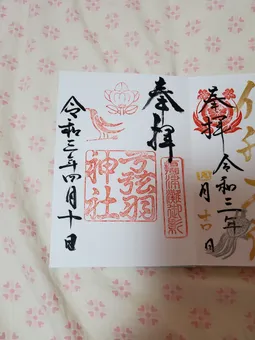 奉拝
弓弦羽
神社
令和三年四月十日
奉拝
令和三年
月吉日